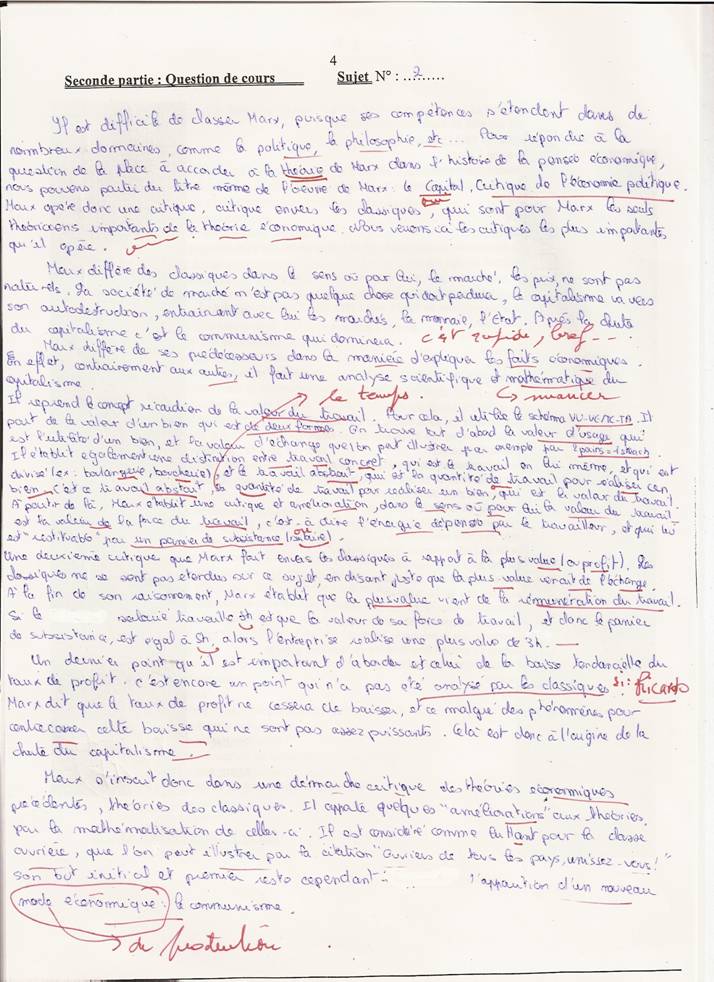 4
Seconde partie : Question de cours Sujet N° : ..2......
Il est difficile de classer Marx, puisque ses compétences s'étendent dans de
nombreux domaines, comme la politique, la philosophie, etc... Pour répondre à la
question de la place à accorder à la théorie de Marx dans l'histoire de la pensée économique,
nous pouvons partir du titre même de l'oeuvre de Marx : le Capital, Critique de l'économie politique.
Marx opère donc une critique, critique envers les classiques, qui sont pour Marx les seuls
théoriciens importants de la théorie économique. Nous verrons ici les critiques les plus importantes
qu'il opère.
Marx diffère des classiques dans le sens où par lui, le marché, les prix, ne sont pas
naturels. La société de marché n'est pas quelque chose qui doit perdurer, le capitalisme va vers
son autodestruction, entrainant avec lui les marchés, la monnaie, l'Etat. Après la chute
du capitalisme c'est le communisme qui dominera. c'est rapide, bref...
Marx diffère de ses prédécesseurs dans la manière d'expliquer les faits économiques.
En effet, contrairement aux autres, il fait une analyse scientifique et mathématique du
capitalisme le temps. nuancer
Il reprend le concept ricardien de la valeur du travail. Pour cela, il utilise le schéma
part de la valeur d'un bien qui est de deux formes. On trouve tout d'abord la valeur d'usage qui
est l'utilité d'un bien, et la valeur d'échange que l'on peut illustrer par exemple par
Il établit également une distinction entre travail concret, qui est le travail en lui même, et qui est
divisé (ex: boulangerie, boucherie), et le travail abstrait, qui est la quantité de travail pour réaliser un
bien, c'est ce travail abstrait, la quantité de travail pour réaliser un bien, qui est la valeur du travail.
A partir de là, Marx établit une critique et amélioration, dans le sens où pour lui la valeur du travail
est la valeur de la force du travail, c'est-à-dire l'énergie dépensée par le travailleur, et qui lui
est "restituée" par un panier de subsistance (salaire). ou
Une deuxième critique que Marx fait envers les classiques a rapport à la plus value (ou profit). Les
classiques ne se sont pas étendus sur ce sujet, en disant juste que la plus-value venait de l'échange.
A la fin de son raisonnement, Marx établit que la plus value vient de la rémunération du travail.
Si le salarié travaille 8h et que la valeur de sa force de travail, et donc le panier
de subsistance, est égal à 5h, alors l'entreprise réalise une plus value de 3h.
Un dernier point qu'il est important d'aborder est celui de la baisse tendancielle du
taux de profit. C'est encore un point qui n'a pas été analysé par les classiques. Si: Ricardo
Marx dit que le taux de profit ne cessera de baisser, et ce malgré des phénomènes pour
contrecarrer cette baisse qui ne sont pas assez puissants. Cela est donc à l'origine de la
chute du capitalisme.
Marx s'inscrit donc dans une démarche critique des théories économiques
précédentes, théories des classiques. Il apporte quelques "améliorations" aux théories,
par la mathématisation de celles-ci. Il est considéré comme luttant pour la classe
ouvrière, que l'on peut illustrer par la citation "Ouvriers de tous les pays, unissez-vous!"
son but initial et premier reste cependant l'apparition d'un nouveau
mode économique : le communisme.
de production